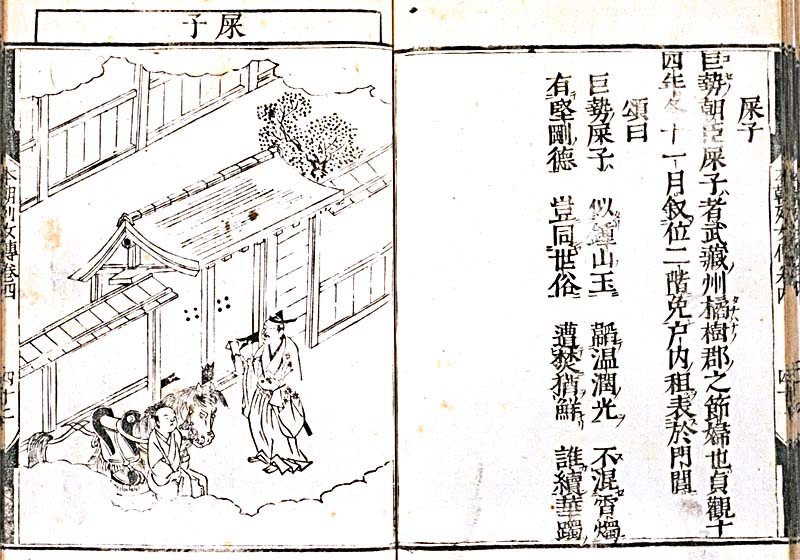 屎子
巨勢朝臣屎子者武藏州橘樹郡之節婦也貞觀十
四年冬十一月叙位二階免戶内租表於門閭
頌曰
巨勢屎子 似鍾山玉 韞温潤光 不混霄燭
有堅剛德 豈同世俗 遭焚猶鮮 誰續華躅
屎子
本朝列女傳卷四 四十二